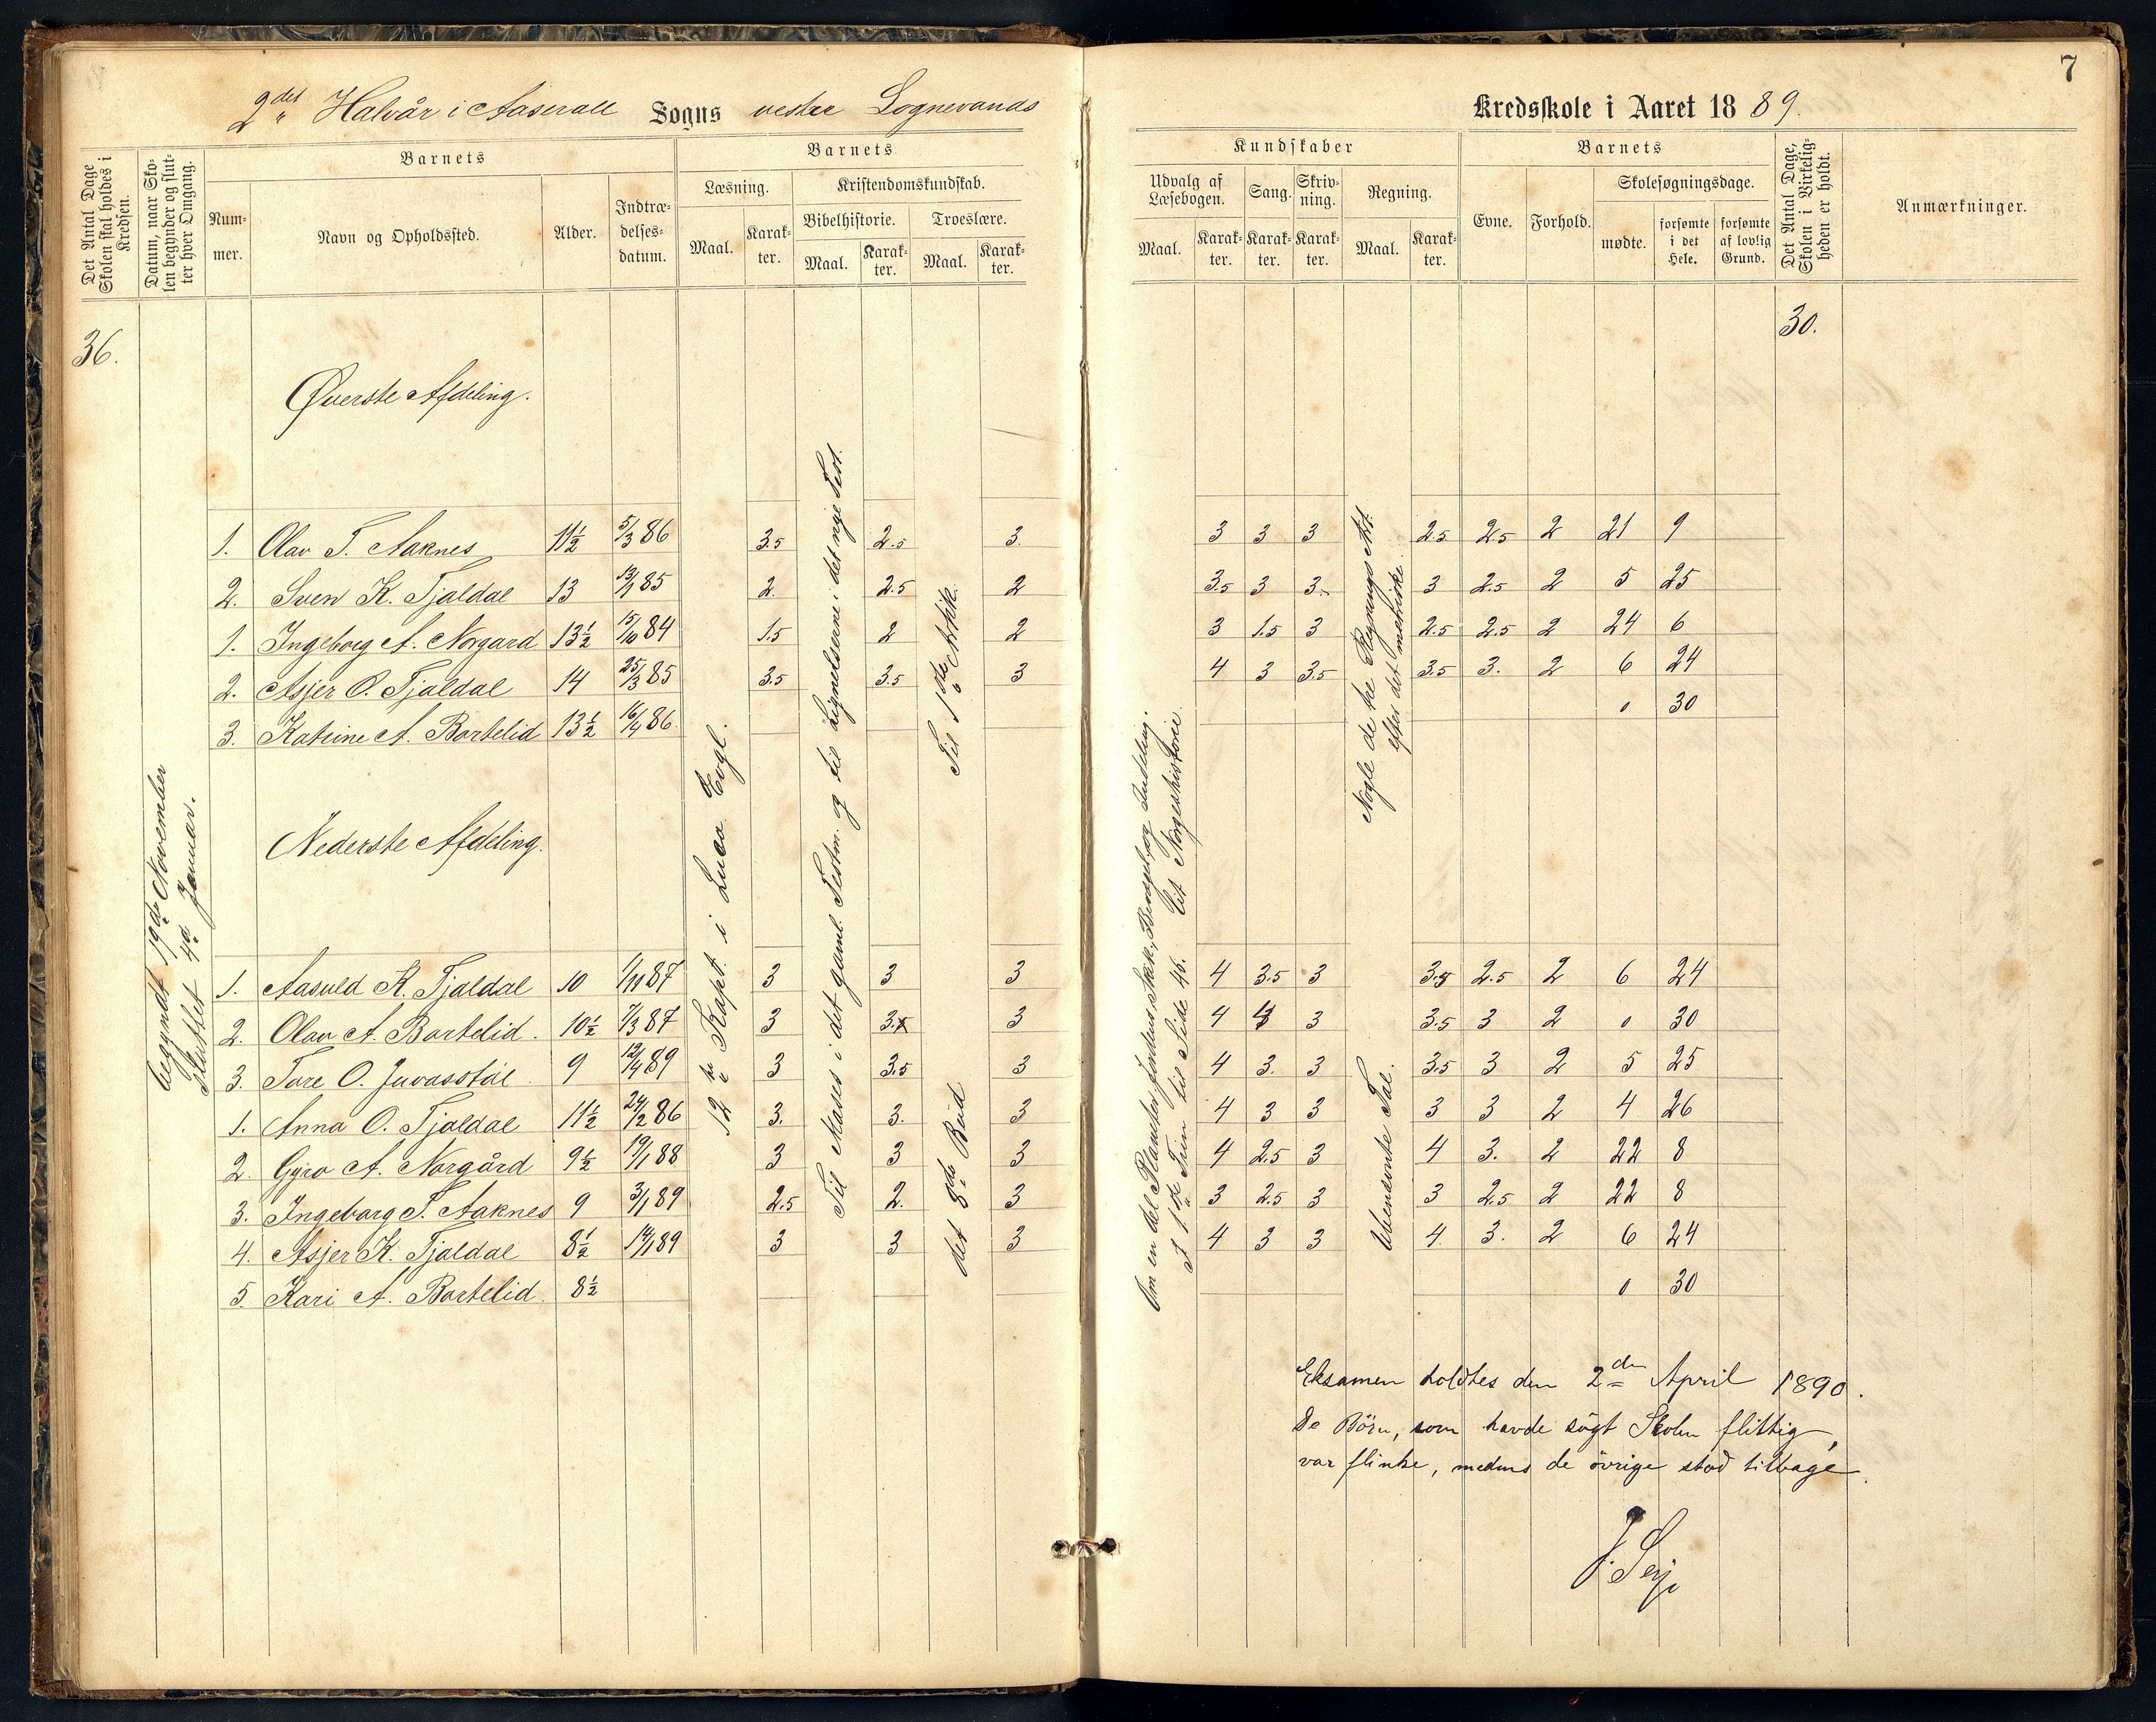 7
2det Halvår i Aaserall Sogns vestre Lognevands Kredsskole i Aaret 1889.
Det Antal Dage Skolen skal holdes i Kredsen.
Datum, naar Skolen begynder og slutter hver Omgang.
Barnets
Nummer.
Navn og Opholdssted.
Alder.
Indtrædelsesdatum.
Barnets
Læsning.
Maal.
Karakter.
Kristendomskundskab.
Bibelhistorie.
Maal.
Karakter.
Troeslære.
Maal.
Karakter.
Kundskaber
Udvalg af Læsebogen.
Maal.
Karakter.
Sang.
Karakter.
Skrivning.
Karakter.
Regning.
Maal.
Karakter.
Barnets
Evne.
Forhold.
Skolesøgningsdage.
mødte.
forsømte i det Hele.
forsømte af lovlig Grund.
Det Antal Dage, Skolen i Virkeligheden er holdt.
Anmærkninger.
36.
30.
Øverste Afdeling.
1. Olav T. Aaknes 11½ 5/3 86 3.5 2.5 3. 3 3 3 2.5 2.5 2 21 9
2. Sven K. Tjaldal 13 13/1 85 2. 2.5 2 3.5 3 3. 3 2.5 2 5 25
1. Ingeborg A. Norgard 13½ 15/10 84 1.5 2 2 3 1.5 3 2.5 2.5 2 24 6
2. Asjer O. Tjaldal 14 25/3 85 3.5 3.5 3 4 3 3.5 3.5 3. 2 6 24
3. Katrine A. Bortelid 13½ 16/4 86. 0 30
Nederste Afdeling.
1. Aasuld K. Tjaldal 10 1/11 87 3 3 3 4 3.5 3 3.5 2.5 2 6 24
2. Olav A. Bortelid. 10½ 7/3 87 3 3. 3 4 3 3.5 3 2 0 30
3. Tore O. Juvasstøl. 9 12/4 89 3 3.5 3 4 3. 3 3.5 3 2 5 25
1. Anna O. Tjaldal 11½ 24/2 86 3. 3. 3 4 3 3 3 3 2 4 26
2. Gyro A. Norgård 9½ 19/1 88 3 3 3 4 2.5 3 4 3. 2 22 8
3. Ingeborg T. Aaknes 9 3/1 89 2.5 2. 3 3 2.5 3 3 2.5 2 22 8
4. Asjer K. Tjaldal 8½ 14/1 89 3 3 3 4 3 3 4. 3. 2 6 24
5. Kari A. Bortelid 8½ 0 30
begyndt 19de November
Sluttet 4de Januar.
12te Kapt. i Luca Evgl.
Til Moses i det gaml. Testm. og til Lignelserne i det nye Test.
Til 1ste Artkk.
det 8de Bud
Om en del Planter, Jordens Inddeling.
A 1ste Trin til Side 46. Lit Norgeshistorie
Nogle de tre Regnings Art.
efter det metriske
Ubenævnte Tal.
Eksamen holdtes den 2den April 1890.
De Børn, som havde søgt Skolen flittig,
var flinke, medens de øvrige stod tilbage.